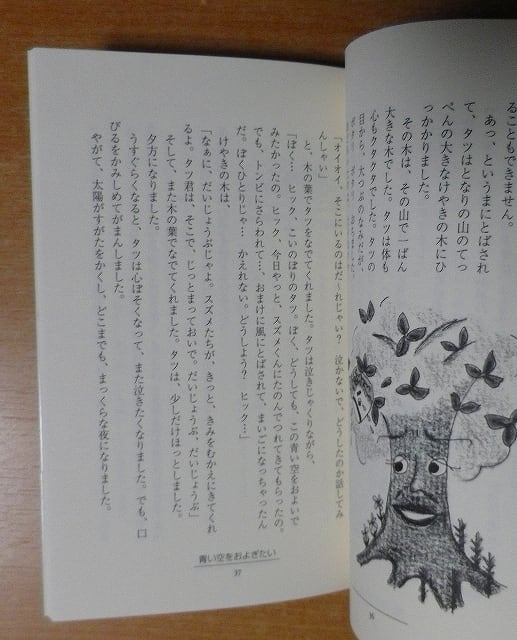 ることもできません。
あっ、というまにとばされ
て、タツはとなりの山のてっ
ぺんの大きなけやきの木にひ
っかかりました。
その木は、その山で一ばん
大きな木でした。タツは体も
心もクタクタでした。タツの
目から、大つぶのなみだが、
36
「オイオイ、そこにいるのはだ〜れじゃい？　泣かないで、どうしたのか話してみ
んしゃい」
と、木の葉でタツをなでてくれました。タツは泣きじゃくりながら、
「ぼく…　ヒック、こいのぼりのタツ。ぼく、どうしても、この青い空をおよいで
みたかったの。ヒック、今日やっと、スズメくんにたのんでつれてきてもらったの。
でも、トンビにさらわれて…、おまけに風にとばされて、まいごになっちゃったん
だ。ぼくひとりじゃ…　かえれない。どうしよう？　ヒック…」
けやきの木は、
「なぁに、だいじょうぶじゃよ。スズメたちが、きっと、きみをむかえにきてくれ
るよ。タツ君は、そこで、じっとまっておいで。だいじょうぶ、だいじょうぶ」
そして、また木の葉でなでてくれました。タツは、少しだけほっとしました。
夕方になりました。
うすぐらくなると、タツは心ぼそくなって、また泣きたくなりました。でも、口
びるをかみしめてがまんしました。
やがて、太陽がすがたをかくし、どこまでも、まっくらな夜になりました。
青い空をおよぎたい
37